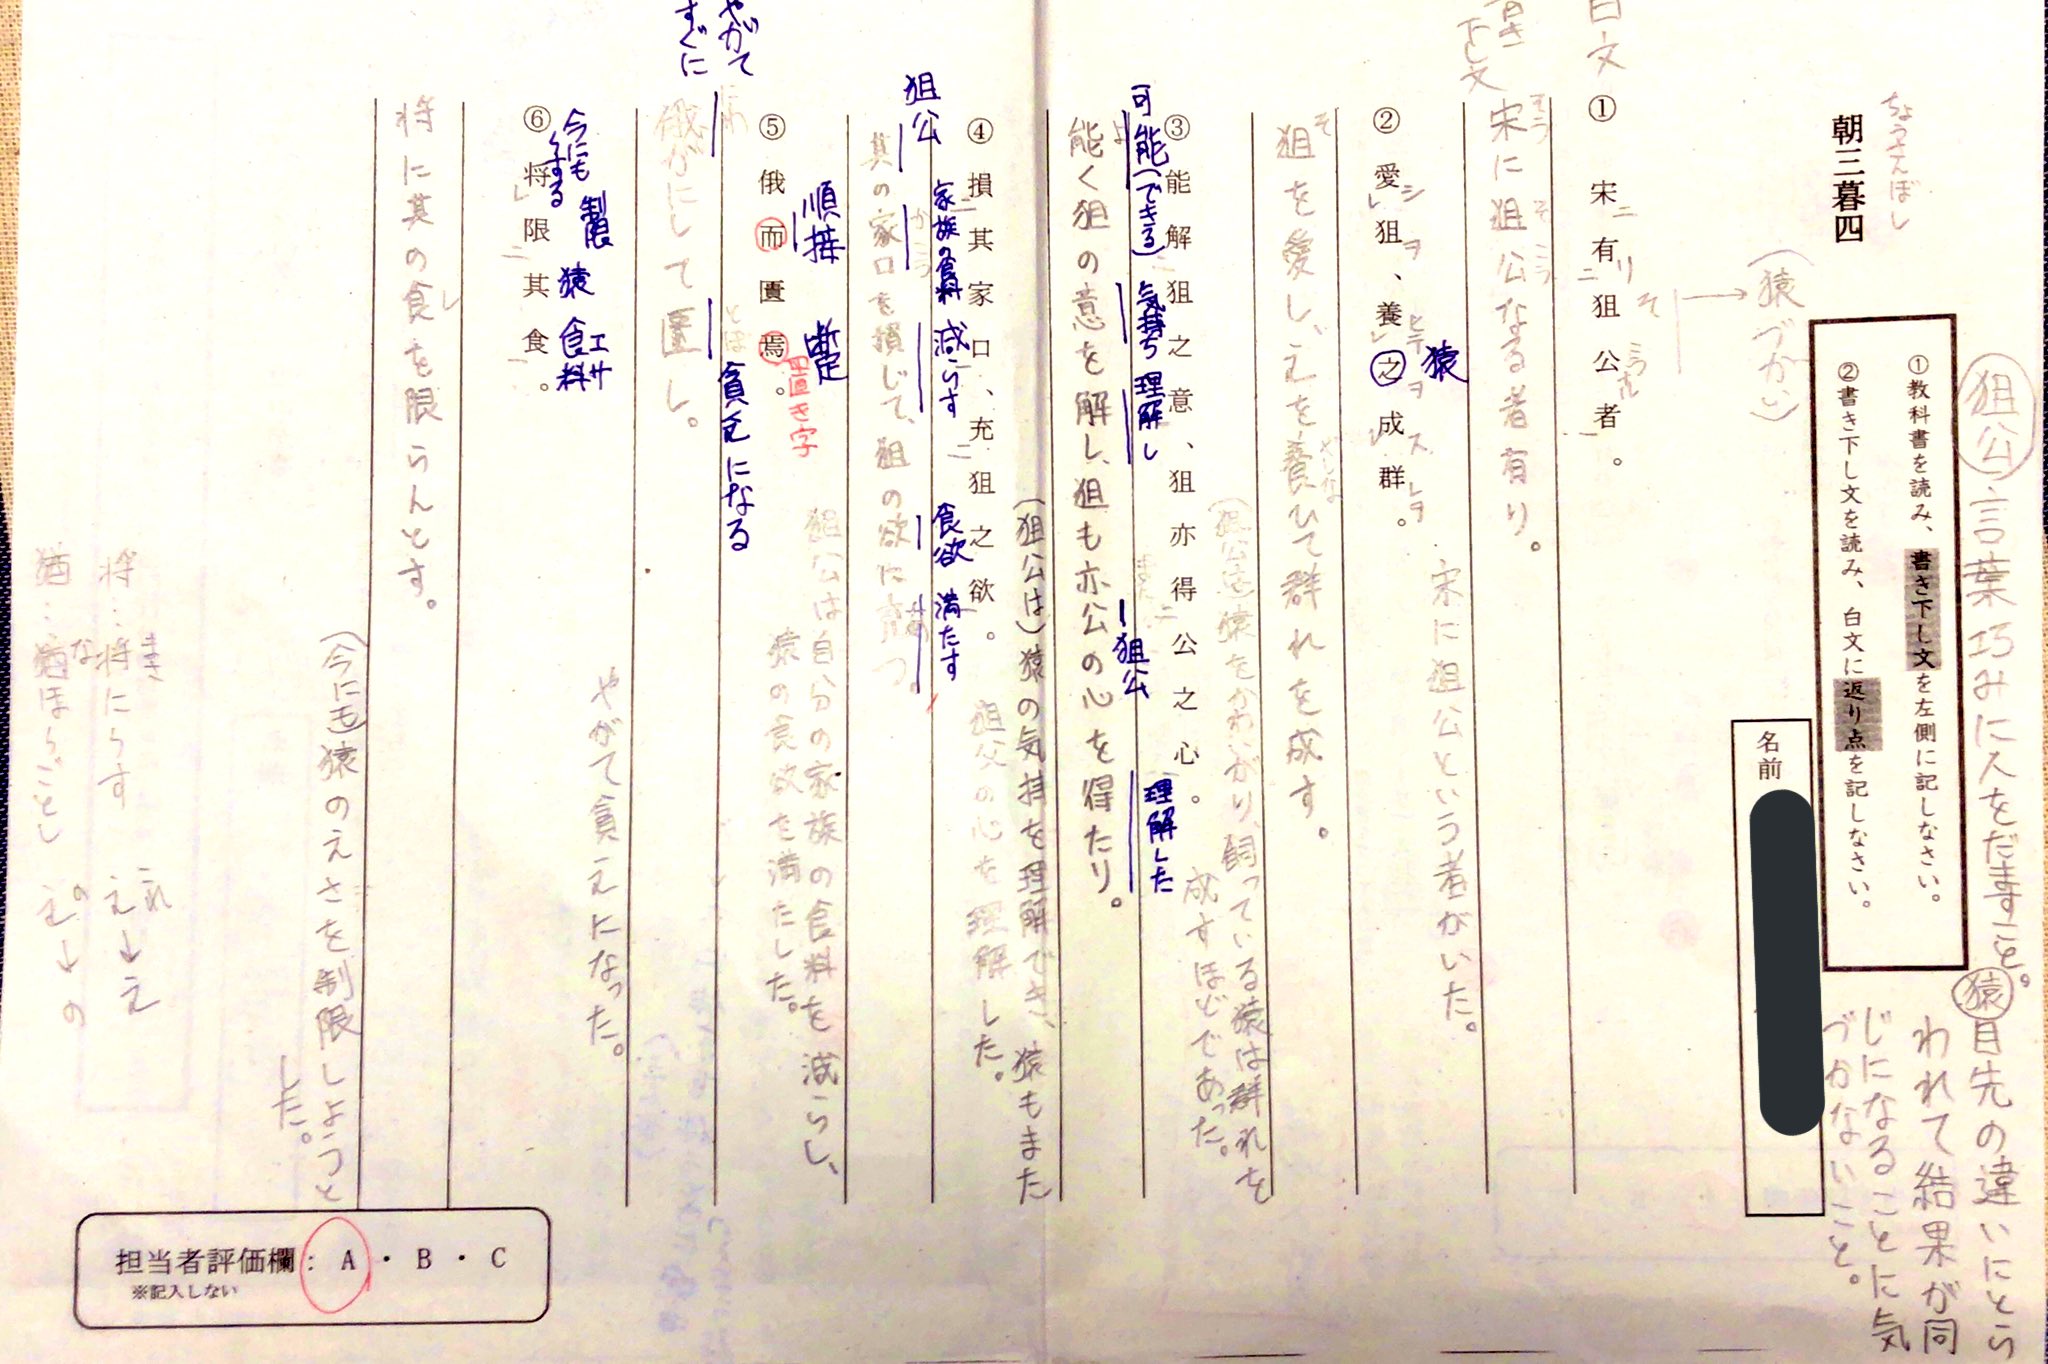 狙公 言葉巧みに人をだますこと。
猿 目先の違いにとら
われて結果が同
じになることに気
づかないこと。
①教科書を読み、書き下し文を左側に記しなさい。
②書き下し文を読み、白文に返り点を記しなさい。
ちょうさんぼし
朝三暮四
名前
(猿づかい)
白文
① 宋有狙公者。
ニ リ そ こうナル
二 一
下し文
宋に狙公なる者有り。
そう そ こう
宋に狙公という者がいた。
② 愛狙、養之成群。
シ ヲ ヒテ ヲ ス レヲ
猿
狙を愛し、之を養ひて群れを成す。
そ やしな
猿をかわいがり、飼っている猿は群れを
成すほどであった。
③ 能解狙之意、狙亦得公之心。
可能(できる) 気持ち 理解し 狙公 理解した
能く狙の意を解し、狙も亦公の心を得たり。
よ また
(狙公は)猿の気持を理解でき、猿もまた
狙父の心を理解した。
④ 損其家口、充狙之欲。
狙公 家族の食料 減らす 食欲 満たす
其の家口を損じて、狙の欲に充つ。
かこう
狙公は自分の家族の食料を減らし、
猿の食欲を満たした。
⑤ 俄而匱焉。
順接 断定
置き字
やがて
すぐに
貧乏になる
俄かにして匱し。
にわ とぼ
やがて貧乏になった。
⑥ 将限其食。
今にも
〜する
制限 猿 食料 エサ
将に其の食を限らんとす。
(今にも)猿のえさを制限しようと
した。
将…将にらす
まさ
猶…猶ほらごとし
な
これ
之→之
の
之→の
担当者評価欄:A・B・C
※記入しない